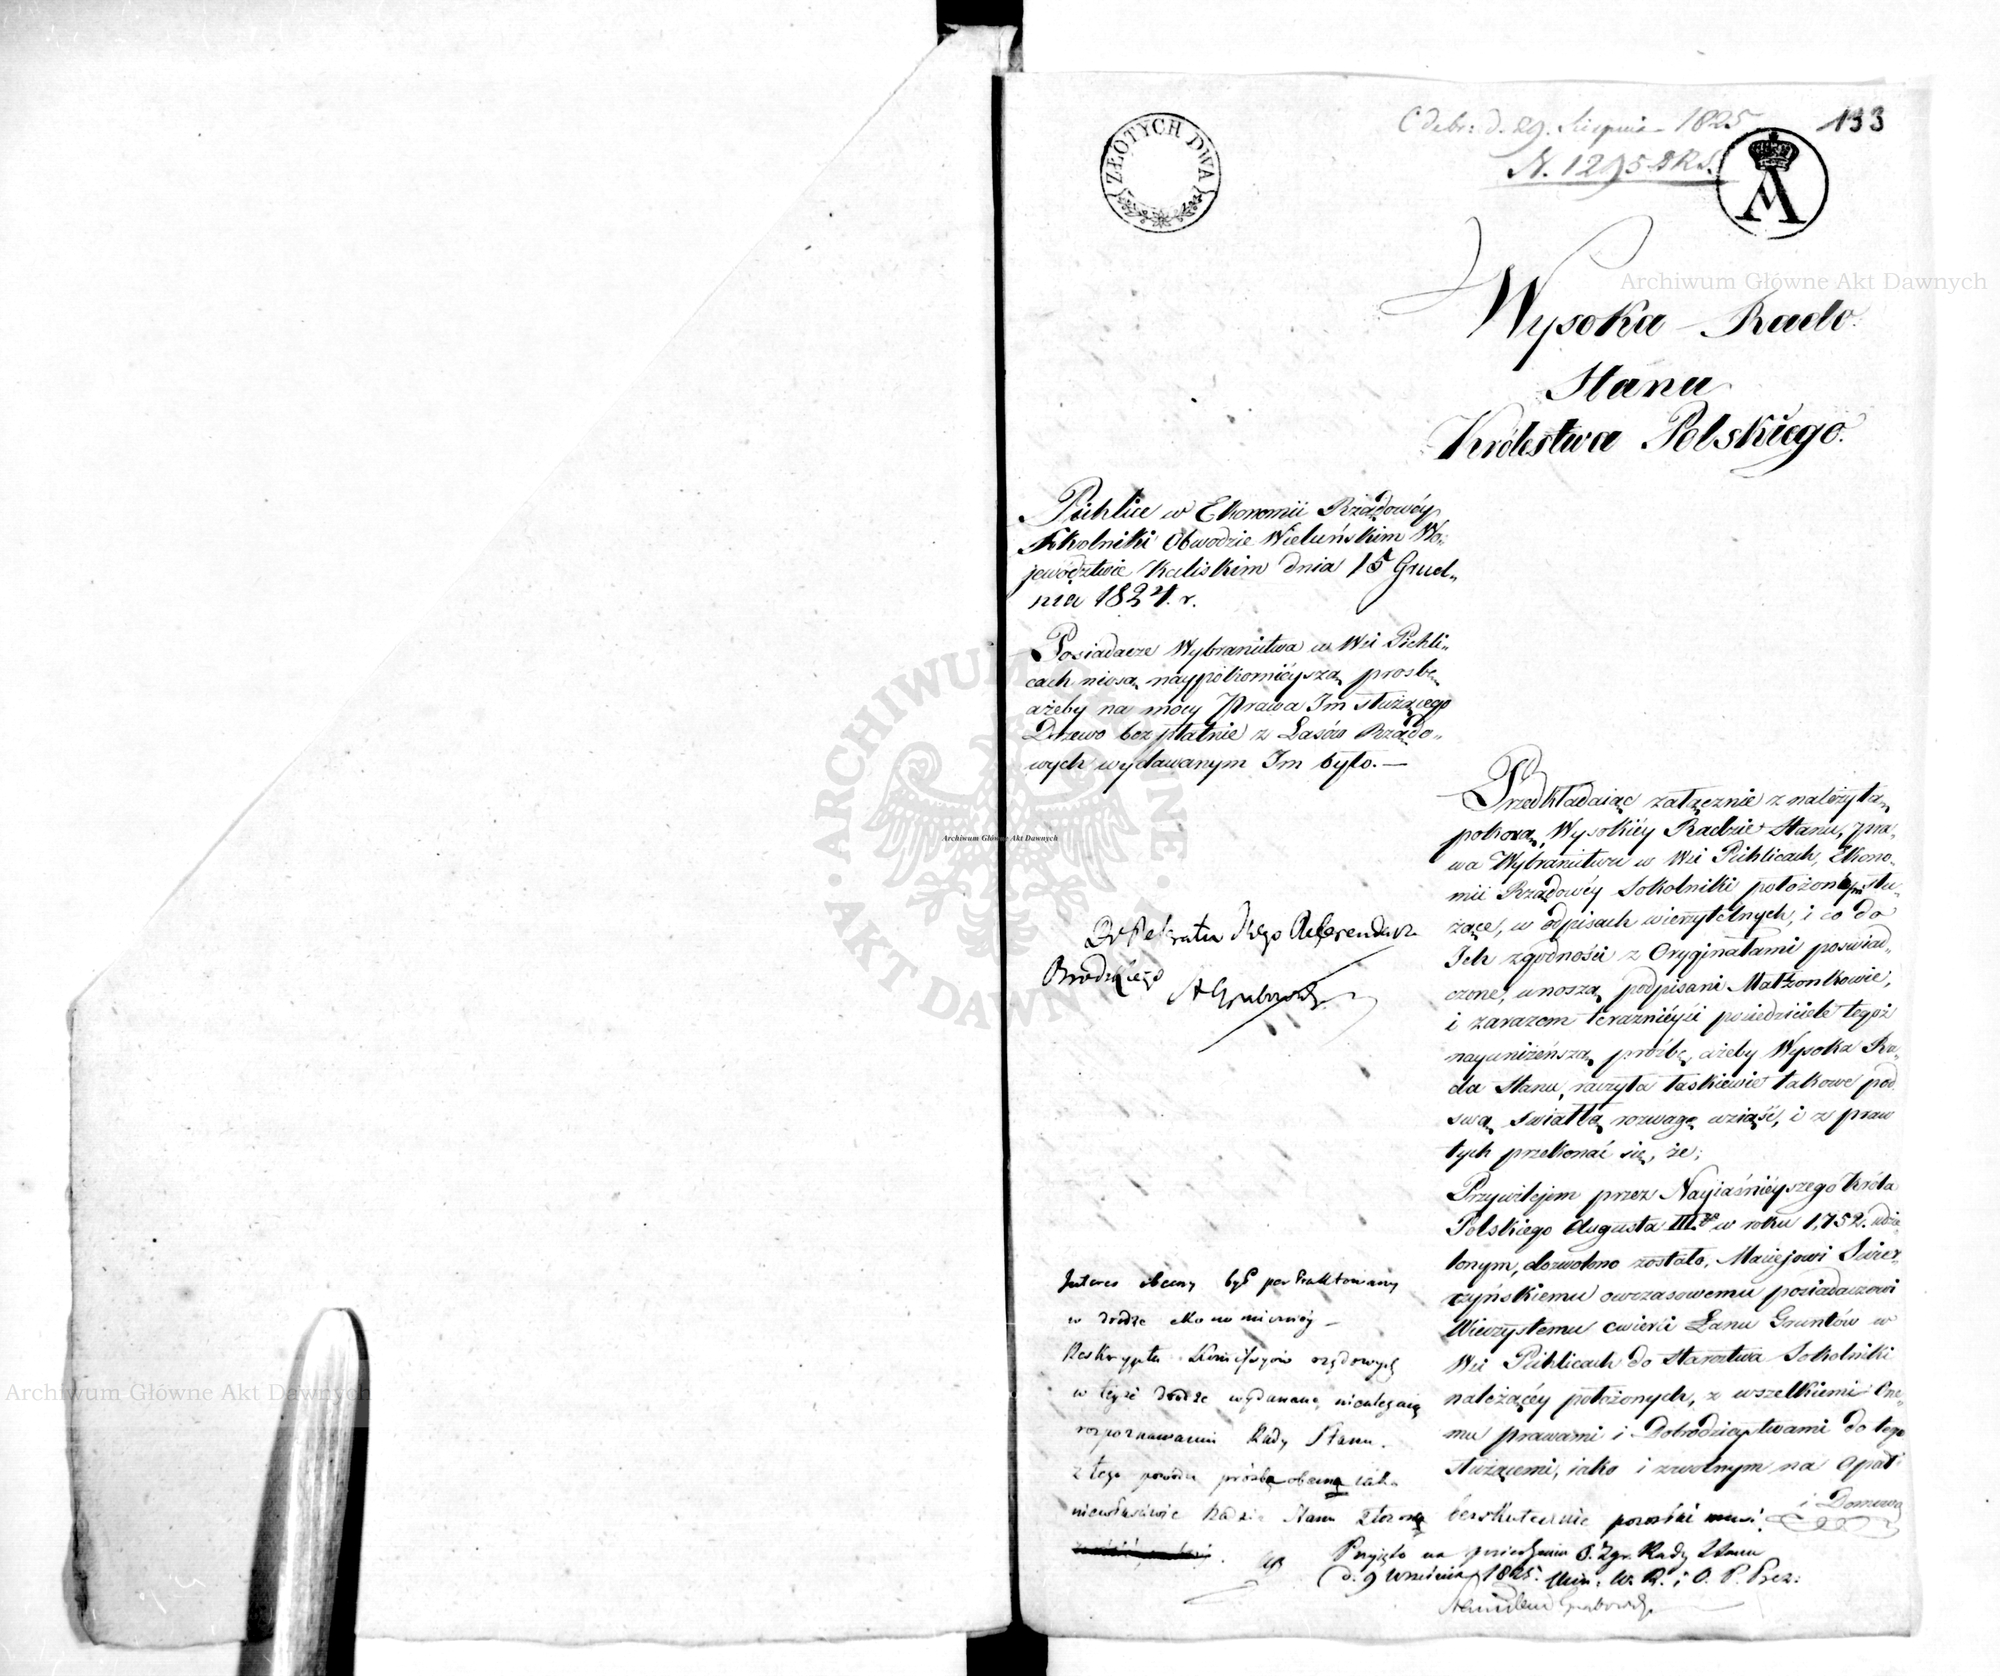 Odebr: d. 29. Sierpnia 1825
133
N. 1295 D.R.S.
ZŁOTYCH DWA
A
Archiwum Główne Akt Dawnych
Wysoka Rado
Stanu
Królestwa Polskiego.
Pichlice w Ekonomii Rządowéy
Sokolniki Obwodzie Wieluńskim Wo:
jewództwie Kaliskim dnia 15 Grud„
nia 1824. r.
Posiadacze Wybraństwa w Wsi Pichli„
cach niosą naypokornieyszą prosbę
ażeby na mocy Prawa Im służącego
Drzewo bezpłatnie z Lasów Rządo„
wych wydawanym Im było. —
Przedkładaiąc załącznie z należytą
pokorą, Wysokiéy Radzie Stanu, pra„
wa Wybraństwu w Wsi Pichlicach, Ekono„
mii Rządowéy Sokolniki położonym słu„
żące, w odpisach wierzytelnych, i co do
Ich zgodności z Oryginałami poswiad„
czone, wnoszą podpisani Małżonkowie,
i zarazem teraznieysi posiedziciele tegoż
nayuniżeńszą próźbę, ażeby Wysoka Ra„
da Stanu, raczyła łaskiewie takowe pod
swą swiatłą rozwagę wziąść, i z praw
tych przekonać się, że;
Przywilejem przez Nayiaśnieyszego Króla
Polskiego Augusta III.go w roku 1,752. udzie
lonym, dozwolono zostało, Maciejowi Swier„
czyńskiemu owczasowemu posiadaczowi
Wieczystemu cwierci Łanu Gruntów w
Wsi Pichlicach do Starostwa Sokolniki
należącéy położonych, z wszelkiemi One„
mu prawami i Dobrodzieystwami do tego
służącemi, iako i zwolnym na Opał
i Domową
Archiwum Główne Akt Dawnych
ARCHIWUM GŁÓWNE · AKT DAWNYCH ·
Do Referatu JWgo Referendarza
Brodzkiego
AGrabowski
Interes obecny był pertraktowany
w drodze ekonomicznéy —
Reskrypta Kommissyów rządowych
w teyże drodze wydawane, nieulegaią
rozpoznawaniu Rady Stanu.
z tego powodu prózba obecna iako
niewłaściwie Radzie Stanu złożona bezskutecznie pozostać musi.
Przyięto na posiedzeniu O. Zgr. Rady Stanu
d. 9 Września 1825. Min: W. R. i O. P. Prez:
Stanisław Grabowski
Archiwum Główne Akt Dawnych